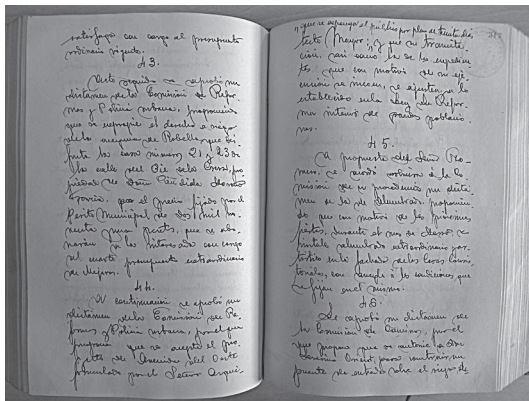 satisfaga con cargo al presupuesto
ordinario vigente.
43.
Acto seguido se aprobó un
dictamen de la Comisión de Refor-
mas y Policía urbana, proponiendo
que se expropie el derecho a riego
de la acequia de Rabella, que dis-
fruta la casa número 21 y 23 de
la calle del Pie de la Cruz, pro-
piedad de Doña Cándida
por el precio fijado por el
Perito Municipal de dos mil no-
venta y una pesetas, que se abo-
narán a la interesada con cargo
al presupuesto extraordinario
de mejoras.
44.
A continuación se aprobó un
dictamen de la Comisión de Re-
formas y Policía urbana, por el que
propone que se acepte el pro-
yecto de Avenida del Oeste
formulado por el Señor Arqui-
y que se exponga al público por plazo de treinta días
tecto Mayor, y que su tramita-
ción, así como la de los expedien-
tes que con motivo de su eje-
cución se inicien, se ajusten a lo
establecido en la Ley de Refor-
ma interior de grandes poblacio-
nes.
45.
A propuesta del Señor
se acordó a la Co-
misión que su procedencia un dicta-
men de la de Alumbrado proponien-
do que con motivo de las próximas
fiestas, durante el mes de
instale alumbrado extraordinario por
en la fachada de las Casas Consis-
toriales, con arreglo a las condiciones que
se fijan en el mismo.
46.
Se aprobó un dictamen de
la Comisión de Caminos, por el
que propone que se autorice a Don
para construir un
puente de entrada sobre el